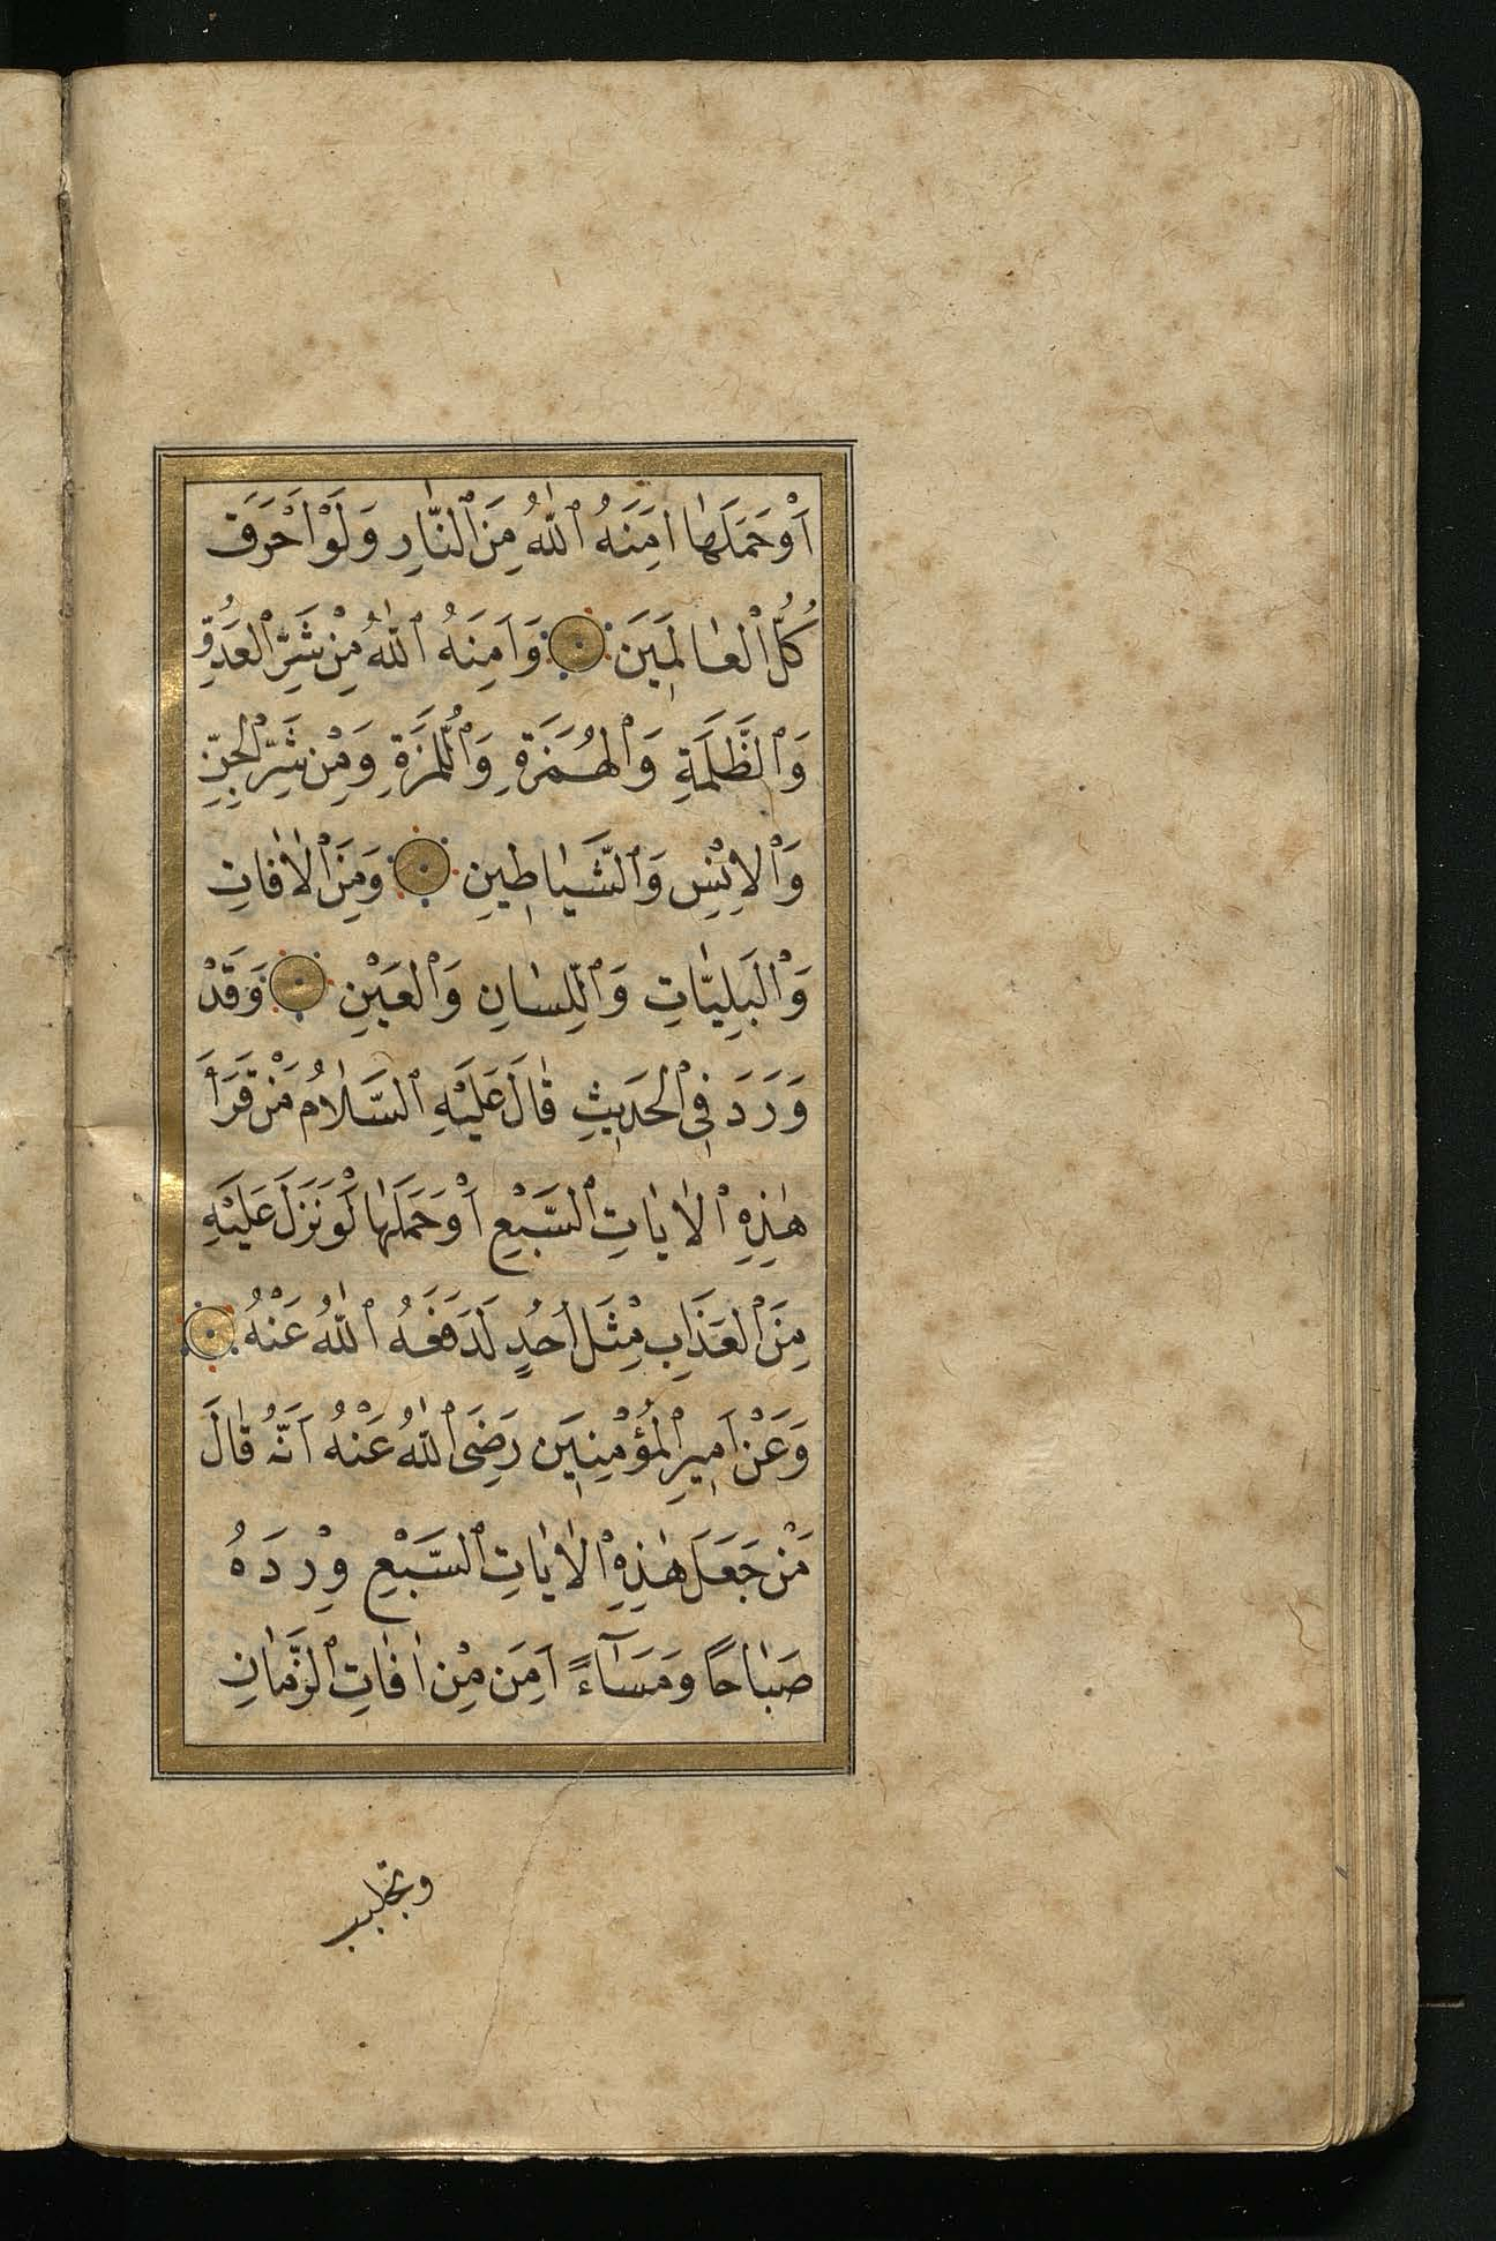 اَوْحَمَلَهَا اٰمَنَهُ ٱللّٰهُ مِنَ ٱلنَّارِ وَلَوْ اَحْرَقَ
كُلَّ الْعَالَمِينَ وَاٰمَنَهُ ٱللّٰهُ مِنْ شَرِّ ٱلْعَدُوِّ
وَٱلظَّلَمَةِ وَٱلْهُمَزَةِ وَٱللُّمَزَةِ وَمِنْ شَرِّ ٱلْجِنِّ
وَٱلْاِنْسِ وَٱلشَّيَاطِينِ وَمِنَ ٱلْاٰفَاتِ
وَٱلْبَلِيَّاتِ وَٱللِّسَانِ وَٱلْعَيْنِ وَقَدْ
وَرَدَ فِي ٱلْحَدِيثِ قَالَ عَلَيْهِ ٱلسَّلَامُ مَنْ قَرَأَ
هٰذِهِ ٱلْاٰيَاتِ ٱلسَّبْعِ اَوْحَمَلَهَا لَوْنَزَلَ عَلَيْهِ
مِنَ ٱلْعَذَابِ مِثْلَ اُحُدٍ لَدَفَعَهُ ٱللّٰهُ عَنْهُ
وَعَنْ اَمِيرِ ٱلْمُؤْمِنِينَ رَضِىَ ٱللّٰهُ عَنْهُ اَنَّهُ قَالَ
مَنْ جَعَلَ هٰذِهِ ٱلْاٰيَاتِ ٱلسَّبْعِ وِرْدَهُ
صَبَاحًا وَمَسَآءً اَمِنَ مِنْ اٰفَاتِ ٱلزَّمَانِ